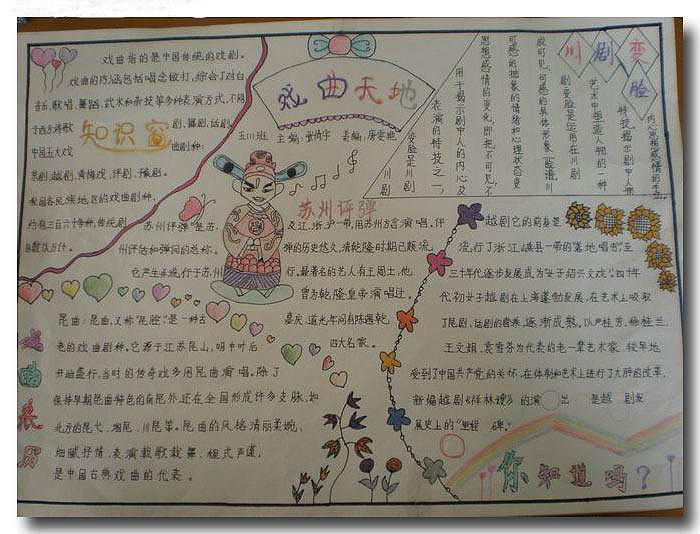 戏曲指的是中国传统的戏剧。
戏曲的内涵包括唱念做打,综合了对白、
音乐、歌唱、舞蹈、武术和杂技等多种表演方式,不同
于西方将歌剧、舞剧、话剧
知识窗
中国五大戏曲剧种:
京剧、越剧、黄梅戏、评剧、豫剧。
我国各民族地区的戏曲剧种,
约有三百六十多种,传统剧
目数以万计。
戏曲天地
五川班 主编: 美编:
川剧变脸
变脸是川剧
表演的特技之一,
用于揭示剧中人的内心及
思想感情的变化,即把不可见、不
可感的抽象的情绪和心理状态变
成可见、可感的具体形象
川
剧变脸是运用在川剧
艺术中塑造人物的一种
特技,揭示剧中人物
内心思想感情的
苏州评弹
苏州评弹是苏
州评话和弹词的总称。
它产生并流行于苏州
及江、浙、沪一带,用苏州方言演唱。评
弹的历史悠久,清乾隆时期已颇流
行。最著名的艺人有王周士,他
曾为乾隆皇帝演唱过。
嘉庆、道光年间有陈遇乾,
四大名家。
越剧它的前身是
流行了浙江嵊县一带的"落地唱书"至
三十年代逐步发展成为女子绍兴文戏。四十年
代初女子越剧在上海蓬勃发展,在艺术上吸取
了昆剧、话剧的营养,逐渐成熟。以尹桂芳、
王文娟、袁雪芬为代表的老一辈艺术家,较早地
受到了中国共产党的关怀,在体制和艺术上进行了大胆的改革,
新编越剧《祥林嫂》的演出是越剧发
展史上的"里程碑。"
戏曲表历
昆曲:昆曲,又称"昆腔"是一种古
老的戏曲剧种。它源于江苏昆山,明中叶后
开始盛行,当时的传奇戏多用昆曲演唱。除了
保持早期昆曲特色的南昆外,还在全国形成许多支脉,如
北方的昆弋、湘昆、川昆等。昆曲的风格清丽柔婉、
细腻抒情,表演载歌载舞、程式严谨,
是中国古典戏曲的代表。
你知道吗?